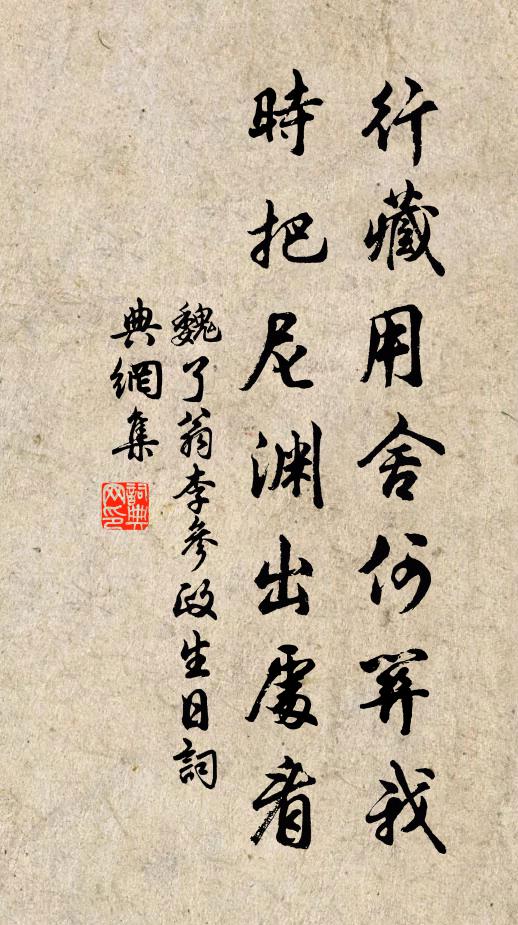 行藏用舍何關我
時把尼淵出處看
魏了翁李參政生日詞
典網集
詞典
网印